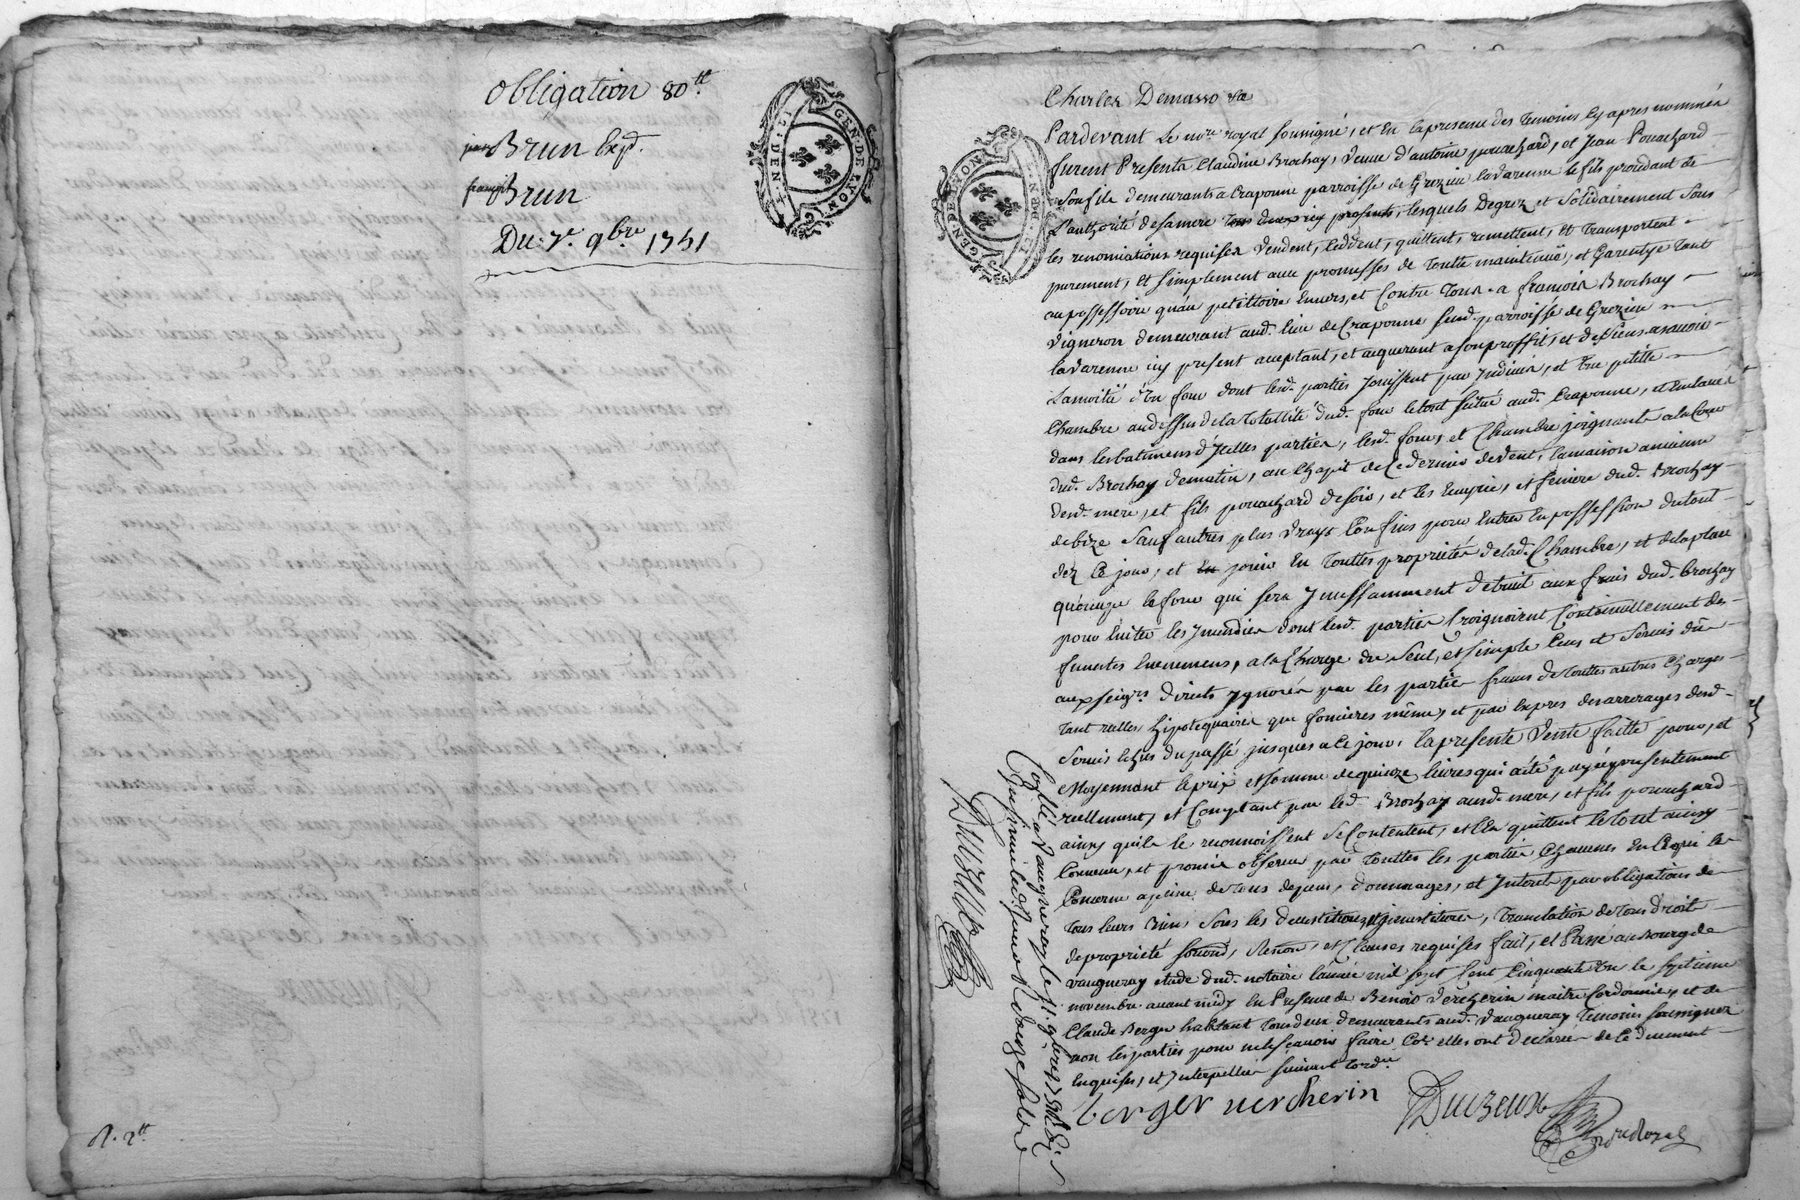 obligation 80.tt
par Brun Exp.d
françois Brun
Du 7.e 9bre 1751
GEN. DE LYON
R. 2tt
Charles Demasso &a
Pardevant Le nore royal soussigné, et En la presence des Temoins Cy apres nommés
furent Presents Claudine Brochay, Veuve d'antoine pouachard, et Jean Pouachard
son fils demeurants a Craponne parroisse de Grezieu lavarenne le fils procedant de
L'authorité de sa mere lesquels Degrez et Solidairement Sous
les renonciations requises Vendent, Cedent, quittent, remettent, et transportent
purement, et simplement avec promesses de toutte maintenüe, et Garentye tant
au possessoire qu'au petitoire Envers, et Contre tous a françois Brochay
Vigneron demeurant aud. lieu de Craponne susd. parroisse de Grezieu
lavarenne icy present acceptant, et acquerant a son proffit, et des siens asavoir
La moitié d'Un four dont lesd. parties Jouissent par Indivis, et Une petite
Chambre au dessus de la totallité dud. four le tout scitué aud. Craponne, et Enclavés
dans les batimens d'Icelles parties, lesd. four, et Chambre joignants a la Cour
dud. Brochay de matin, au Chapit de Ce dernier de Vent, la maison ancienne
desd. mere, et fils pouachard de soir, et les Ecurie, et feniere dud. Brochay
de bize Sauf autres plus Vrays Confins pour Entrer En possession du tout
dez Ce jour, et jouir En touttes proprietés de lad. Chambre, et de la place
qu'occupe le four qui sera Incessamment detruit aux frais dud. Brochay
pour Eviter les Incendies dont lesd. parties Craignoient Continuellement des
funestes Evenemens, a la Charge du Seul, et simple Cens et Servis dû
aux seigrs. directs Ignorés par les parties francs de touttes autres Charges
tant reelles, hipotequaires que foncieres même, et par Expres des arrerages desd.
Servis Echus du passé jusques a Ce jour, la presente Vente faitte pour, et
Moyennant le prix et somme de quinze livres qui a été payé presentement
reellement, et Comptant par led. Brochay ausd. mere, et fils pouachard
ainsy qu'ils le reconnoissent Se Contentent, et l'En quittent le tout ainsy
Convenu, et promis observer par touttes les parties Chacunes En Ce qui les
Concerne a peine de tous depens, dommages, et Interets par obligations de
tous leurs Biens Sous les devestitures, et investitures, translation de tous droit
de proprieté et Clauses requises fait, et Passé au bourg de
Vaugneray etude dud. notaire l'année mil sept Cent Cinquante Un le septieme
novembre avant midy En Presence de Benoist Vercherin maitre Cordonnier, et de
Claude Berger habitant tous deux demeurants aud. Vaugneray temoins soussignez
non les parties pour ne le sçavoir faire Comme elles ont declarées de Ce duement
Enquises, et Interpellées suivant l'ordce.
berger vercherin
Duczeux
Conllé a Vaugneray le 11. 9bre 1751
Duczeux